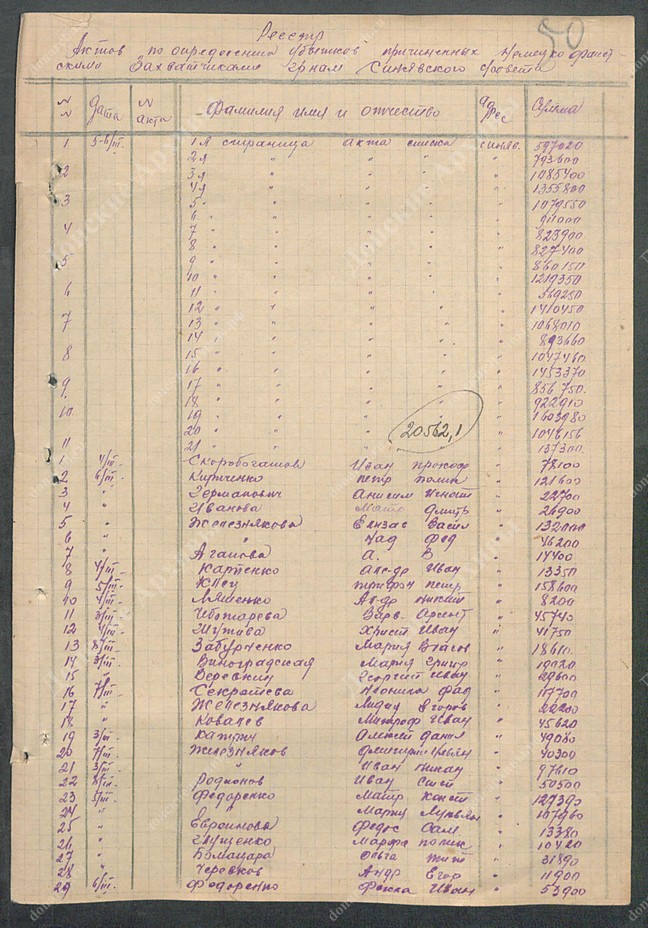 50
Реестр
Актов по определению убытков причиненных Немецко фашист-
скими Захватчиками гр-нам Синявского с/совета
№ № дата № акта Фамилия имя и отчество адрес Сумма
1 5-6/III. 1я страница акта списка синяв. 597020
2я " " " 793600
2 3я " " " 1085400
4я " " " 1355800
3 5 " " " " 1079550
6 " " " "
4 7 " " " " 823900
8 " " " " 827400
5 9 " " " " 860150
10 " " " " 1219350
6 11 " " " " 569250
12 " " " " 1410450
7 13 " " " " 1068010
14 " " " " 893660
8 15 " " " " 1047460
16 " " " " 1453370
9. 17 " " " " 856750.
18 " " " " 922910
10 19 " " " " 1603980
20 " " 20562,1 " 1048156
11 21 " " " 137300.
1 4/III. Скоробогатов Иван Прокоф " 78100
2 6/III. Кириченко Петр Полик " 121600
3 " Германович Анисим Игнат " 22700
4 " Иванова Матр Дмитр " 26900
5 " Железнякова Елизав Васил " 132000
6 " " Над Фед " 46200
7 " Агапова А. В " 14400
8 4/III. Карпенко Алек-др Иван " 13350
9 5/III. Клец Трифон Петр " 158600
10 4/III. Ляшенко Ал-др Никит " 8200
11 3/III. Чеботарева Варв- Арсент " 45740
12 4/III. Шутова Христ Иван " 41750
13 8/III. Забурненко Мария Власов " 18610.
14 3/III. Виноградская Мария Григор " 19020
15 " Веревкин Георгий Иван " 29600
16 7/III. Секретева Леонила Фад " 17700
17 " Железнякова Лидия Егоров " 22200
18 " Ковалев Митроф Иван " 45620
19 3/III. Каткин Алексей Данил " 49080
20 7/III. Железняков Дмитрий Ульян " 40300
21 3/III. " Иван Никан " 97610
22 8/III. Родионов Иван " 50500
23 5/III. Федоренко Матр Конст " 127390
24 " Мария Лукьян " 107960
25 " Евфимова Федос Сам. " 13380
26 " Глущенко Марфа Полик " 10420
27 " Бомацара Ольга Тит " 31890
28 " Черевков Андр Егор " 11900
29 6/III. Федоренко Фекла Иван " 53900
Донские Архивы